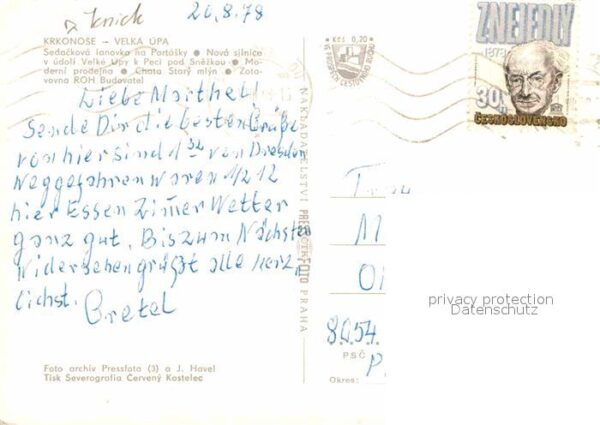 Knick 20.8.78
KRKONOŠE – VELKÁ ÚPA
Sedačková lanovka na Portášky ● Nová silnice
v údolí Velké Úpy k Peci pod Sněžkou ● Mo-
derní prodejna ● Chata Starý mlýn ● Zota-
vovna ROH Budovatel
Liebe Marthel!
Sende Dir die besten Grüße
von hier sind 1 von Dresden
weggefahren waren 1/2 12
hier Essen Zimer Wetter
ganz gut. Bis zum Nächsten
Widersehen grüßt alle herz
lichst.
Gretel
Foto archiv Pressfoto (3) a J. Havel
Tisk Severografia Červený Kostelec
NAKLADATELSTVÍ PRESSFOTO PRAHA
Kčs 0,20
VE PROSPĚCH CESTOVNÍHO RUCHU
Z.NEJEDLÝ
1878
30h
ČESKOSLOVENSKO
M
8054
PSČ
P
Okres:
privacy protection
Datenschutz